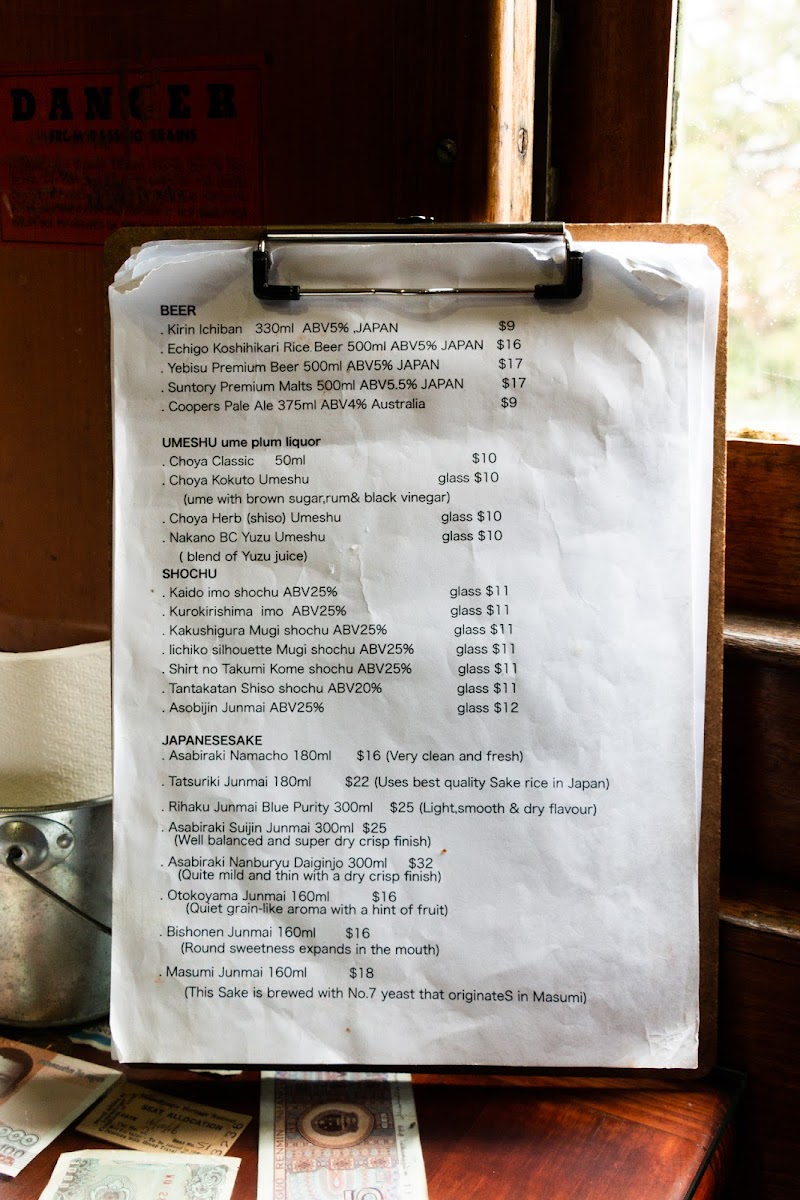 DANGER
FROM PASSING TRAINS
BEER
. Kirin Ichiban 330ml ABV5% ,JAPAN $9
. Echigo Koshihikari Rice Beer 500ml ABV5% JAPAN $16
. Yebisu Premium Beer 500ml ABV5% JAPAN $17
. Suntory Premium Malts 500ml ABV5.5% JAPAN $17
. Coopers Pale Ale 375ml ABV4% Australia $9
UMESHU ume plum liquor
. Choya Classic 50ml $10
. Choya Kokuto Umeshu glass $10
(ume with brown sugar,rum& black vinegar)
. Choya Herb (shiso) Umeshu glass $10
. Nakano BC Yuzu Umeshu glass $10
( blend of Yuzu juice)
SHOCHU
. Kaido imo shochu ABV25% glass $11
. Kurokirishima imo ABV25% glass $11
. Kakushigura Mugi shochu ABV25% glass $11
. Iichiko silhouette Mugi shochu ABV25% glass $11
. Shirt no Takumi Kome shochu ABV25% glass $11
. Tantakatan Shiso shochu ABV20% glass $11
. Asobijin Junmai ABV25% glass $12
JAPANESESAKE
. Asabiraki Namacho 180ml $16 (Very clean and fresh)
. Tatsuriki Junmai 180ml $22 (Uses best quality Sake rice in Japan)
. Rihaku Junmai Blue Purity 300ml $25 (Light,smooth & dry flavour)
. Asabiraki Suijin Junmai 300ml $25
(Well balanced and super dry crisp finish)
. Asabiraki Nanburyu Daiginjo 300ml $32
(Quite mild and thin with a dry crisp finish)
. Otokoyama Junmai 160ml $16
(Quiet grain-like aroma with a hint of fruit)
. Bishonen Junmai 160ml $16
(Round sweetness expands in the mouth)
. Masumi Junmai 160ml $18
(This Sake is brewed with No.7 yeast that originateS in Masumi)
SEAT ALLOCATION